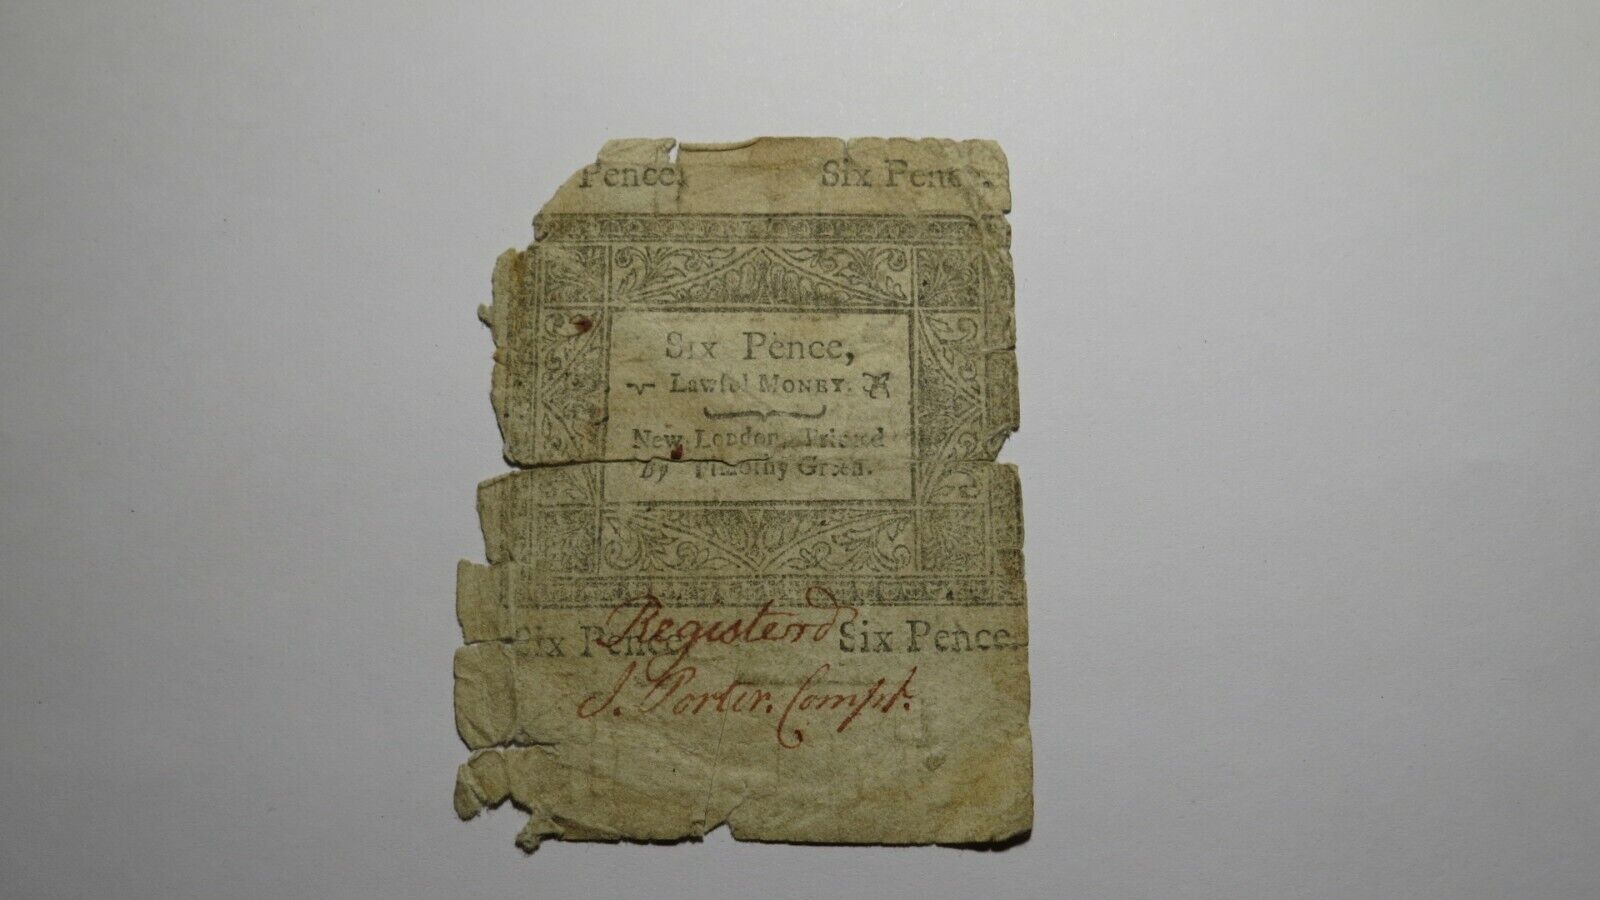 Pence. Six Pence.
Six Pence,
Lawful Money.
New London, Printed
By Timothy Green.
Six Pence. Six Pence.
Registerd
J. Porter. Compt.